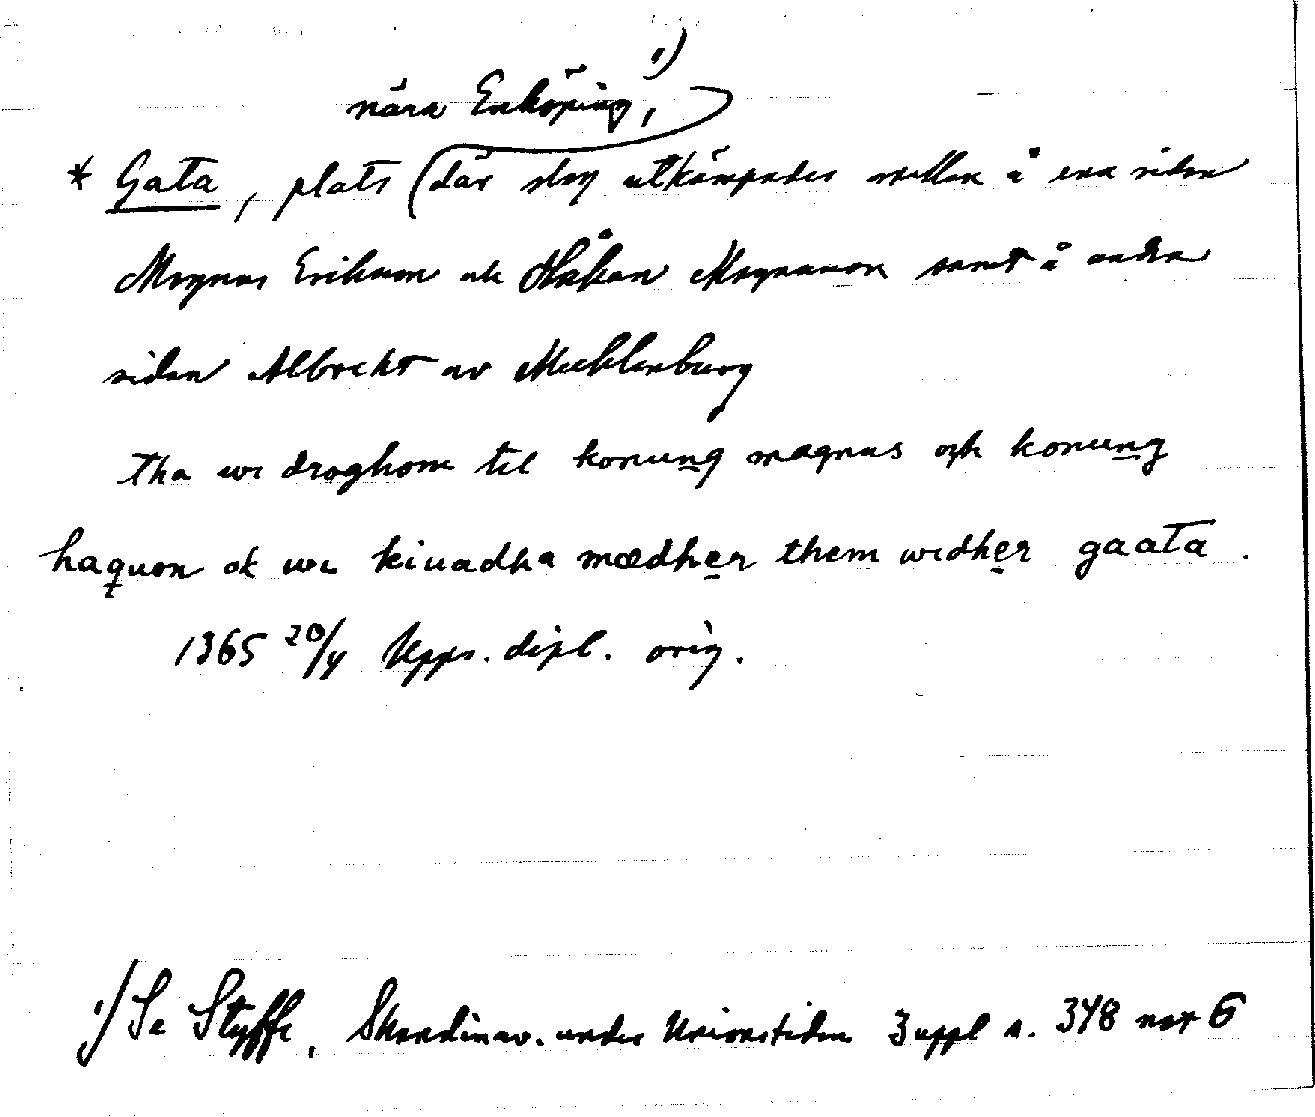 nära Enköping, 1)
* Gata, plats där slag utkämpades mellan å ena sidan
Magnus Eriksson och Håkan Magnusson samt å andra
sidan Albrecht av Mecklenburg
tha wi droghom til konung magnus och konung
haquon ok wi kiuadha mædher them widher gaata.
1365 20/4 Upps. dipl. orig.
1) Se Styffe, Skandinav. under Unionstiden 3 uppl s. 348 not 6